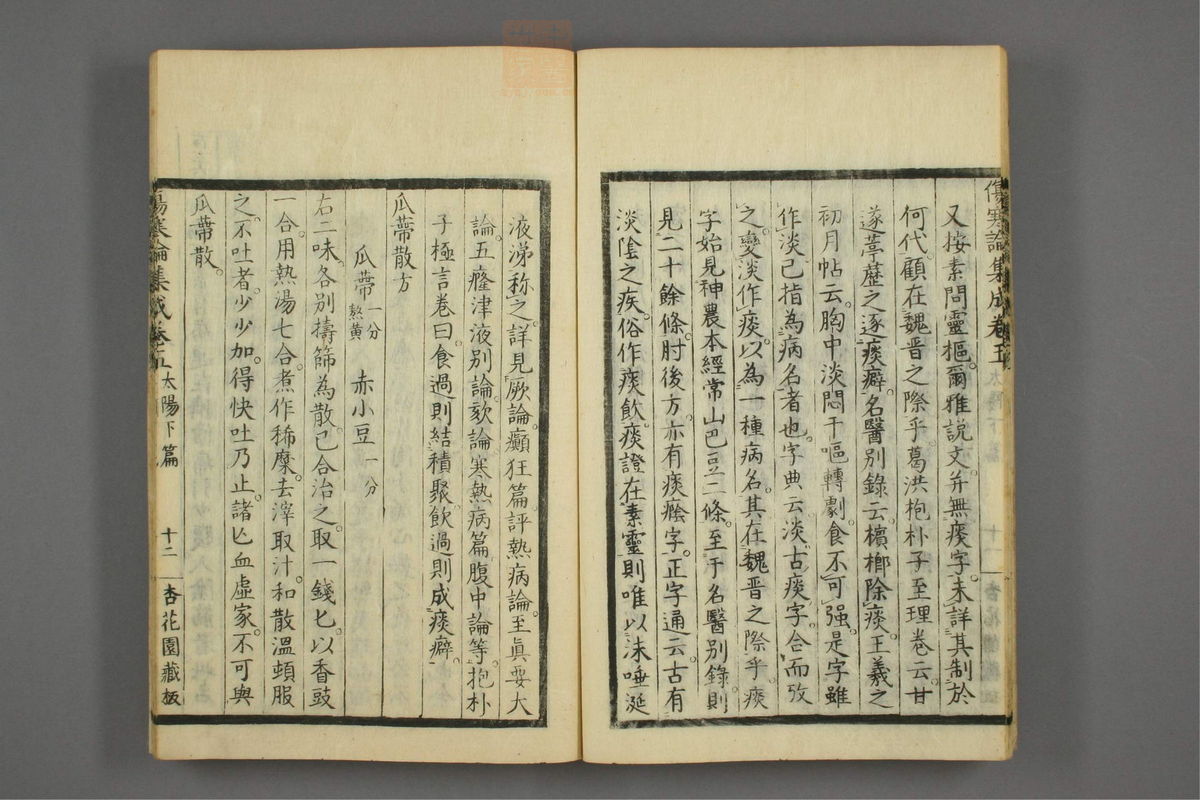 傷寒論集成卷五 太陽下篇
又按素問靈樞爾雅説文并無痰字未詳其制於
何代顧在魏晉之際乎葛洪抱朴子至理卷云甘
遂葶藶之逐痰癖名醫別錄云檳榔除痰王羲之
初月帖云胸中淡悶干嘔轉劇食不可強是字雖
作淡已指為病名者也字典云淡古痰字合而攷
之變淡作痰以為一種病名其在魏晉之際乎痰
字始見神農本經常山巴豆二條至于名醫別錄則
見二十餘條肘後方亦有痰癊字正字通云古有
淡陰之疾俗作痰飲痰證在素靈則唯以沫唾涎
液涕称之詳見厥論癲狂篇評熱病論至眞要大
論五癃津液別論欬論寒熱病篇腹中論等抱朴
子極言卷曰食過則結積聚飲過則成痰癖
瓜蔕散方
瓜蔕一分熬黄 赤小豆一分
右二味各別擣篩為散已合治之取一錢匕以香豉
一合用熱湯七合煮作稀糜去滓取汁和散溫頓服
之不吐者少少加得快吐乃止諸亾血虛家不可與
瓜蔕散
傷寒論集成卷五 太陽下篇 十二 杏花園藏板